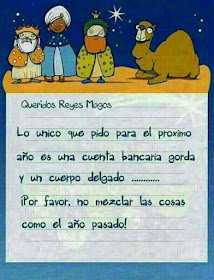 Queridos Reyes Magos
Lo unico que pido para el proximo
año es una cuenta bancaria gorda
y un cuerpo delgado ............
¡Por favor, no mezclar las cosas
como el año pasado!